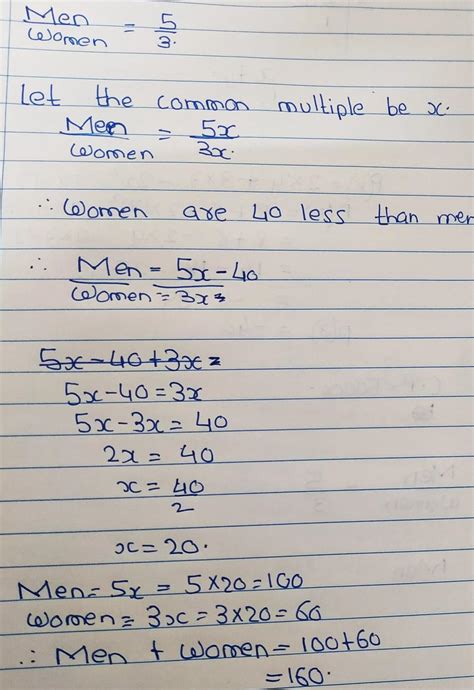 Men = 5
Women 3.
Let the common multiple be x.
Men = 5x
Women 3x.
∴ Women are 40 less than men
∴ Men = 5x - 40
Women = 3x
5x - 40 + 3x =
5x - 40 = 3x
5x - 3x = 40
2x = 40
x = 40
2
x = 20.
Men = 5x = 5×20 = 100
Women = 3x = 3×20 = 60
∴ Men + Women = 100+60
= 160.